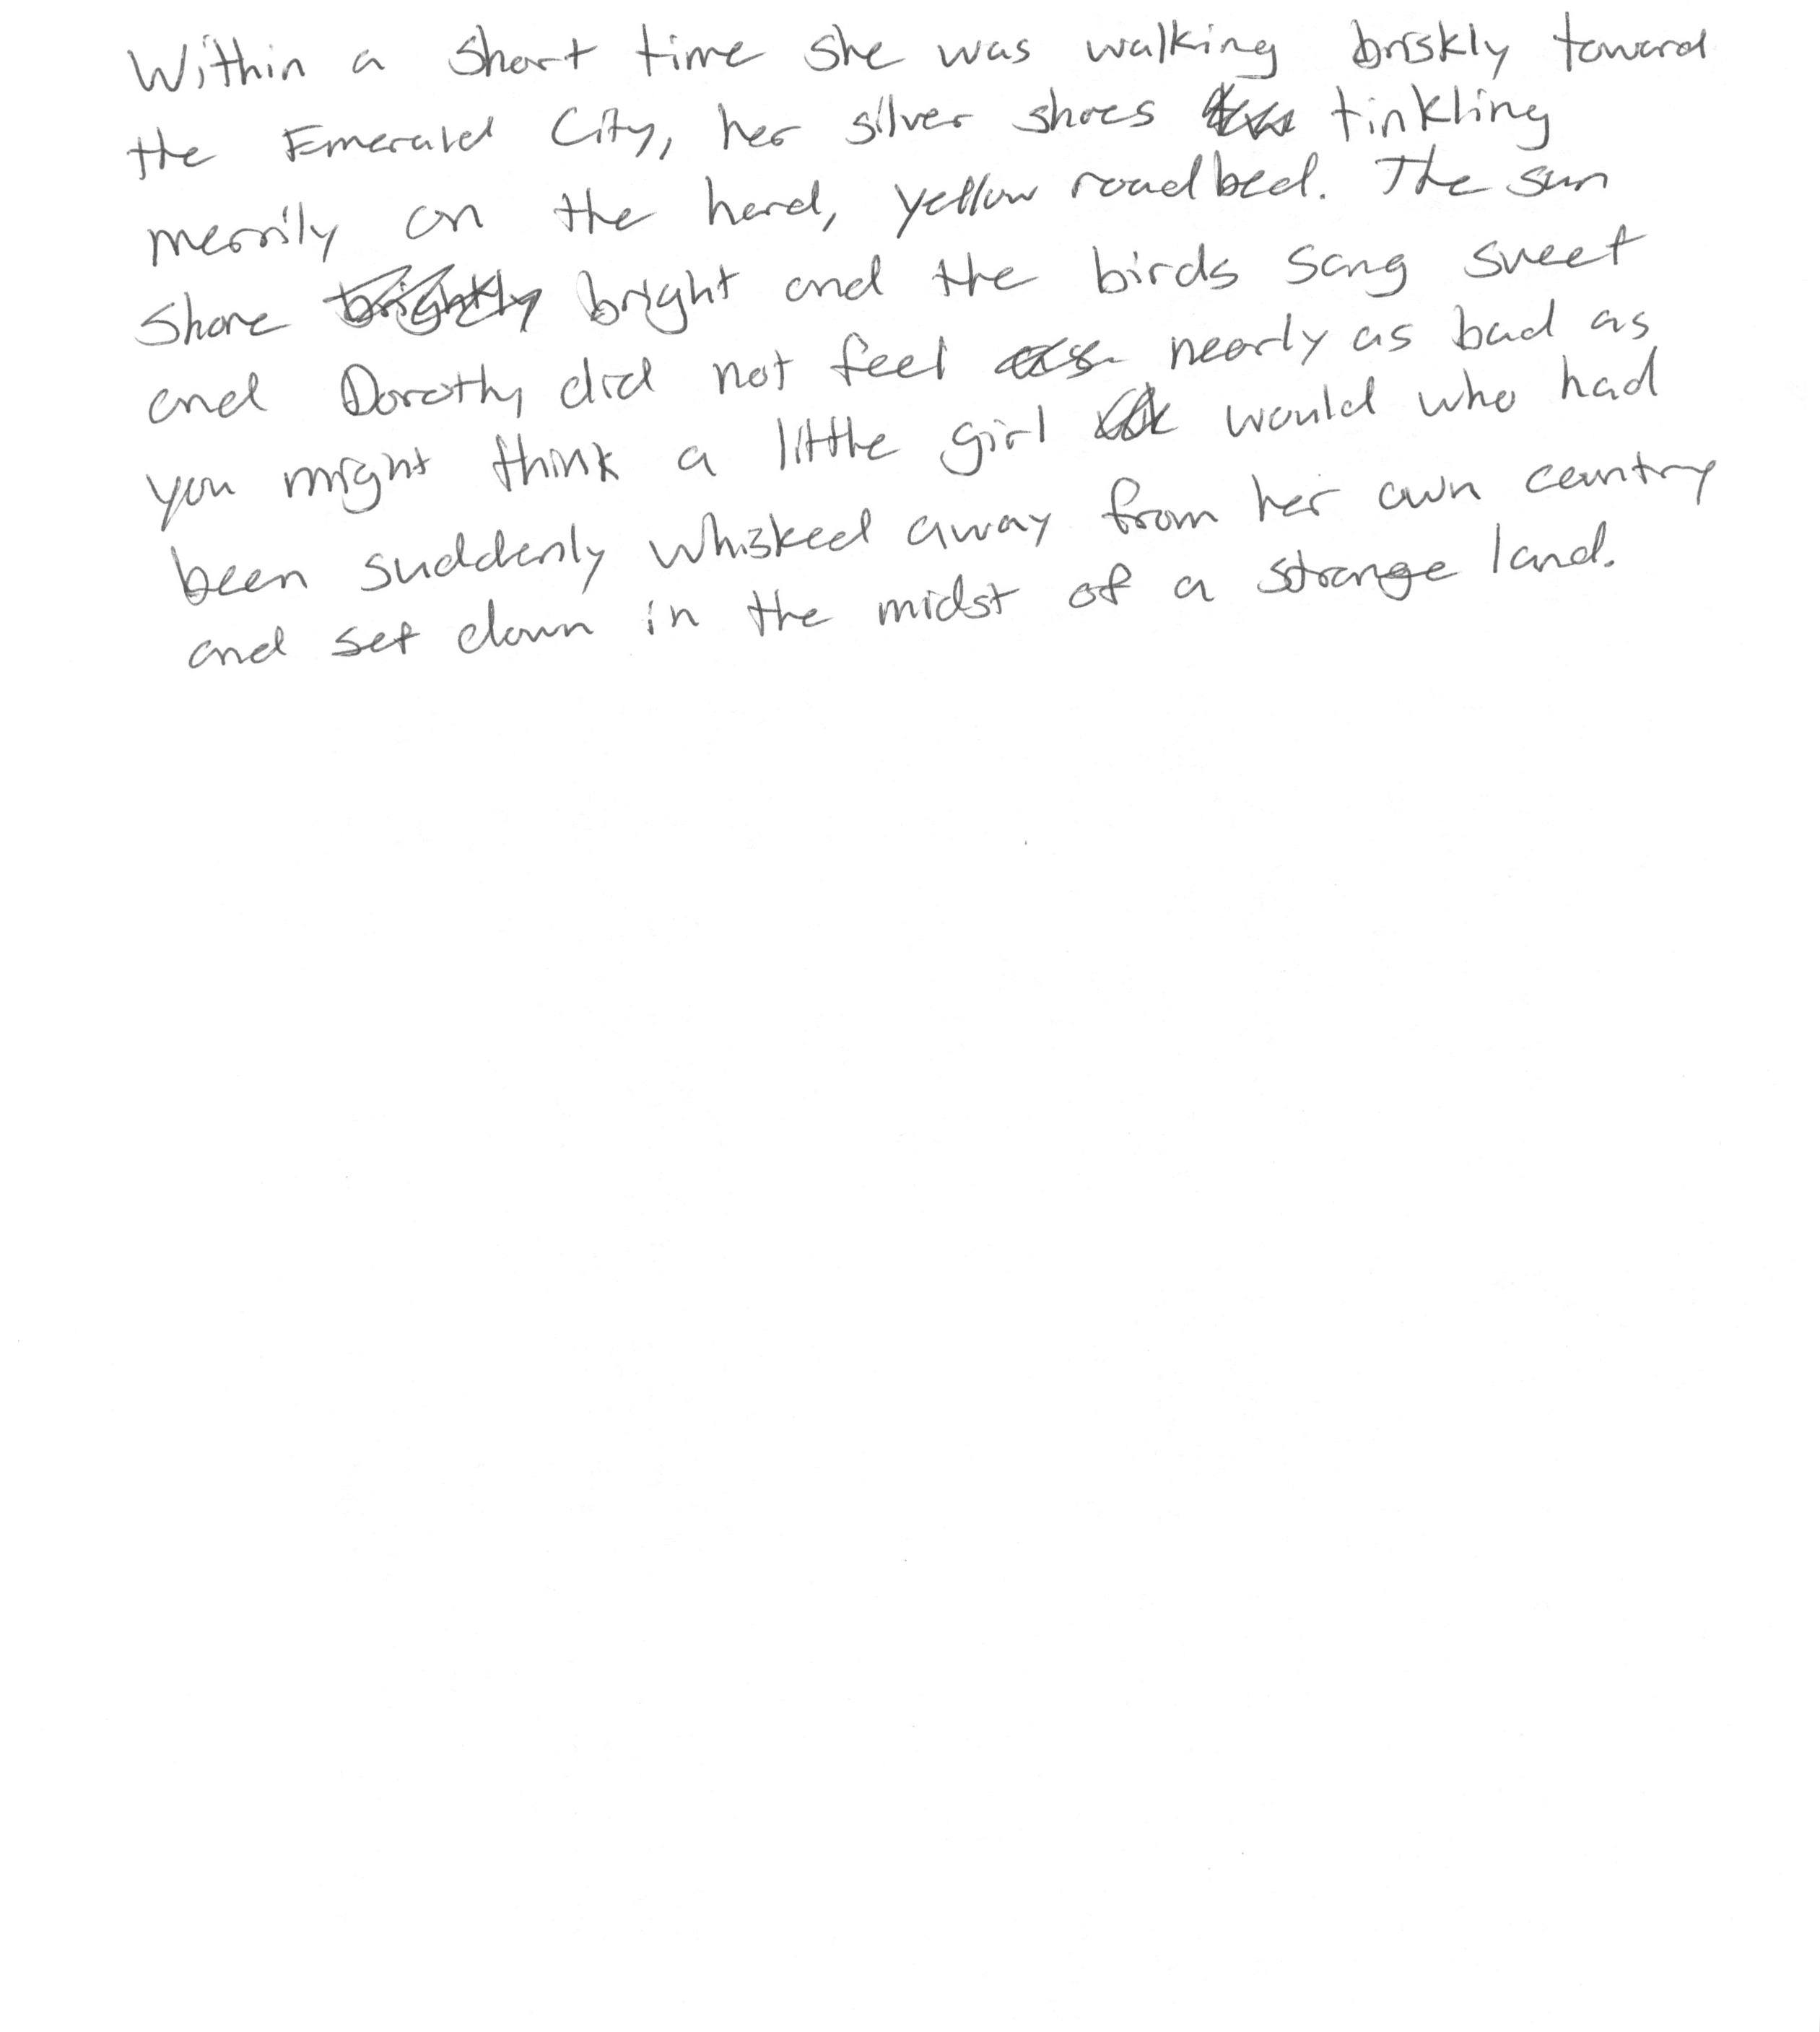 Within a short time she was walking briskly toward
the Emerald City, her silver shoes tinkling
merrily on the hard, yellow roadbed. The sun
shone brightly bright and the birds sang sweet
and Dorothy did not feel nearly as bad as
you might think a little girl would who had
been suddenly whisked away from her own country
and set down in the midst of a strange land.